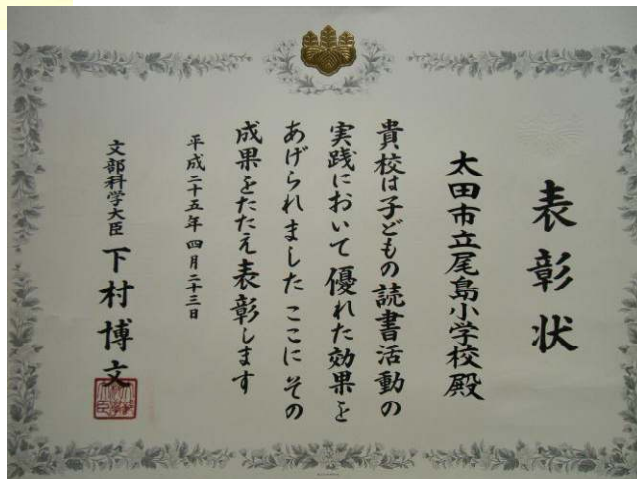 表彰状
太田市立尾島小学校殿
貴校は子どもの読書活動の
実践において優れた効果を
あげられました ここに その
成果をたたえ表彰します
平成二十五年四月二十三日
文部科学大臣 下村博文